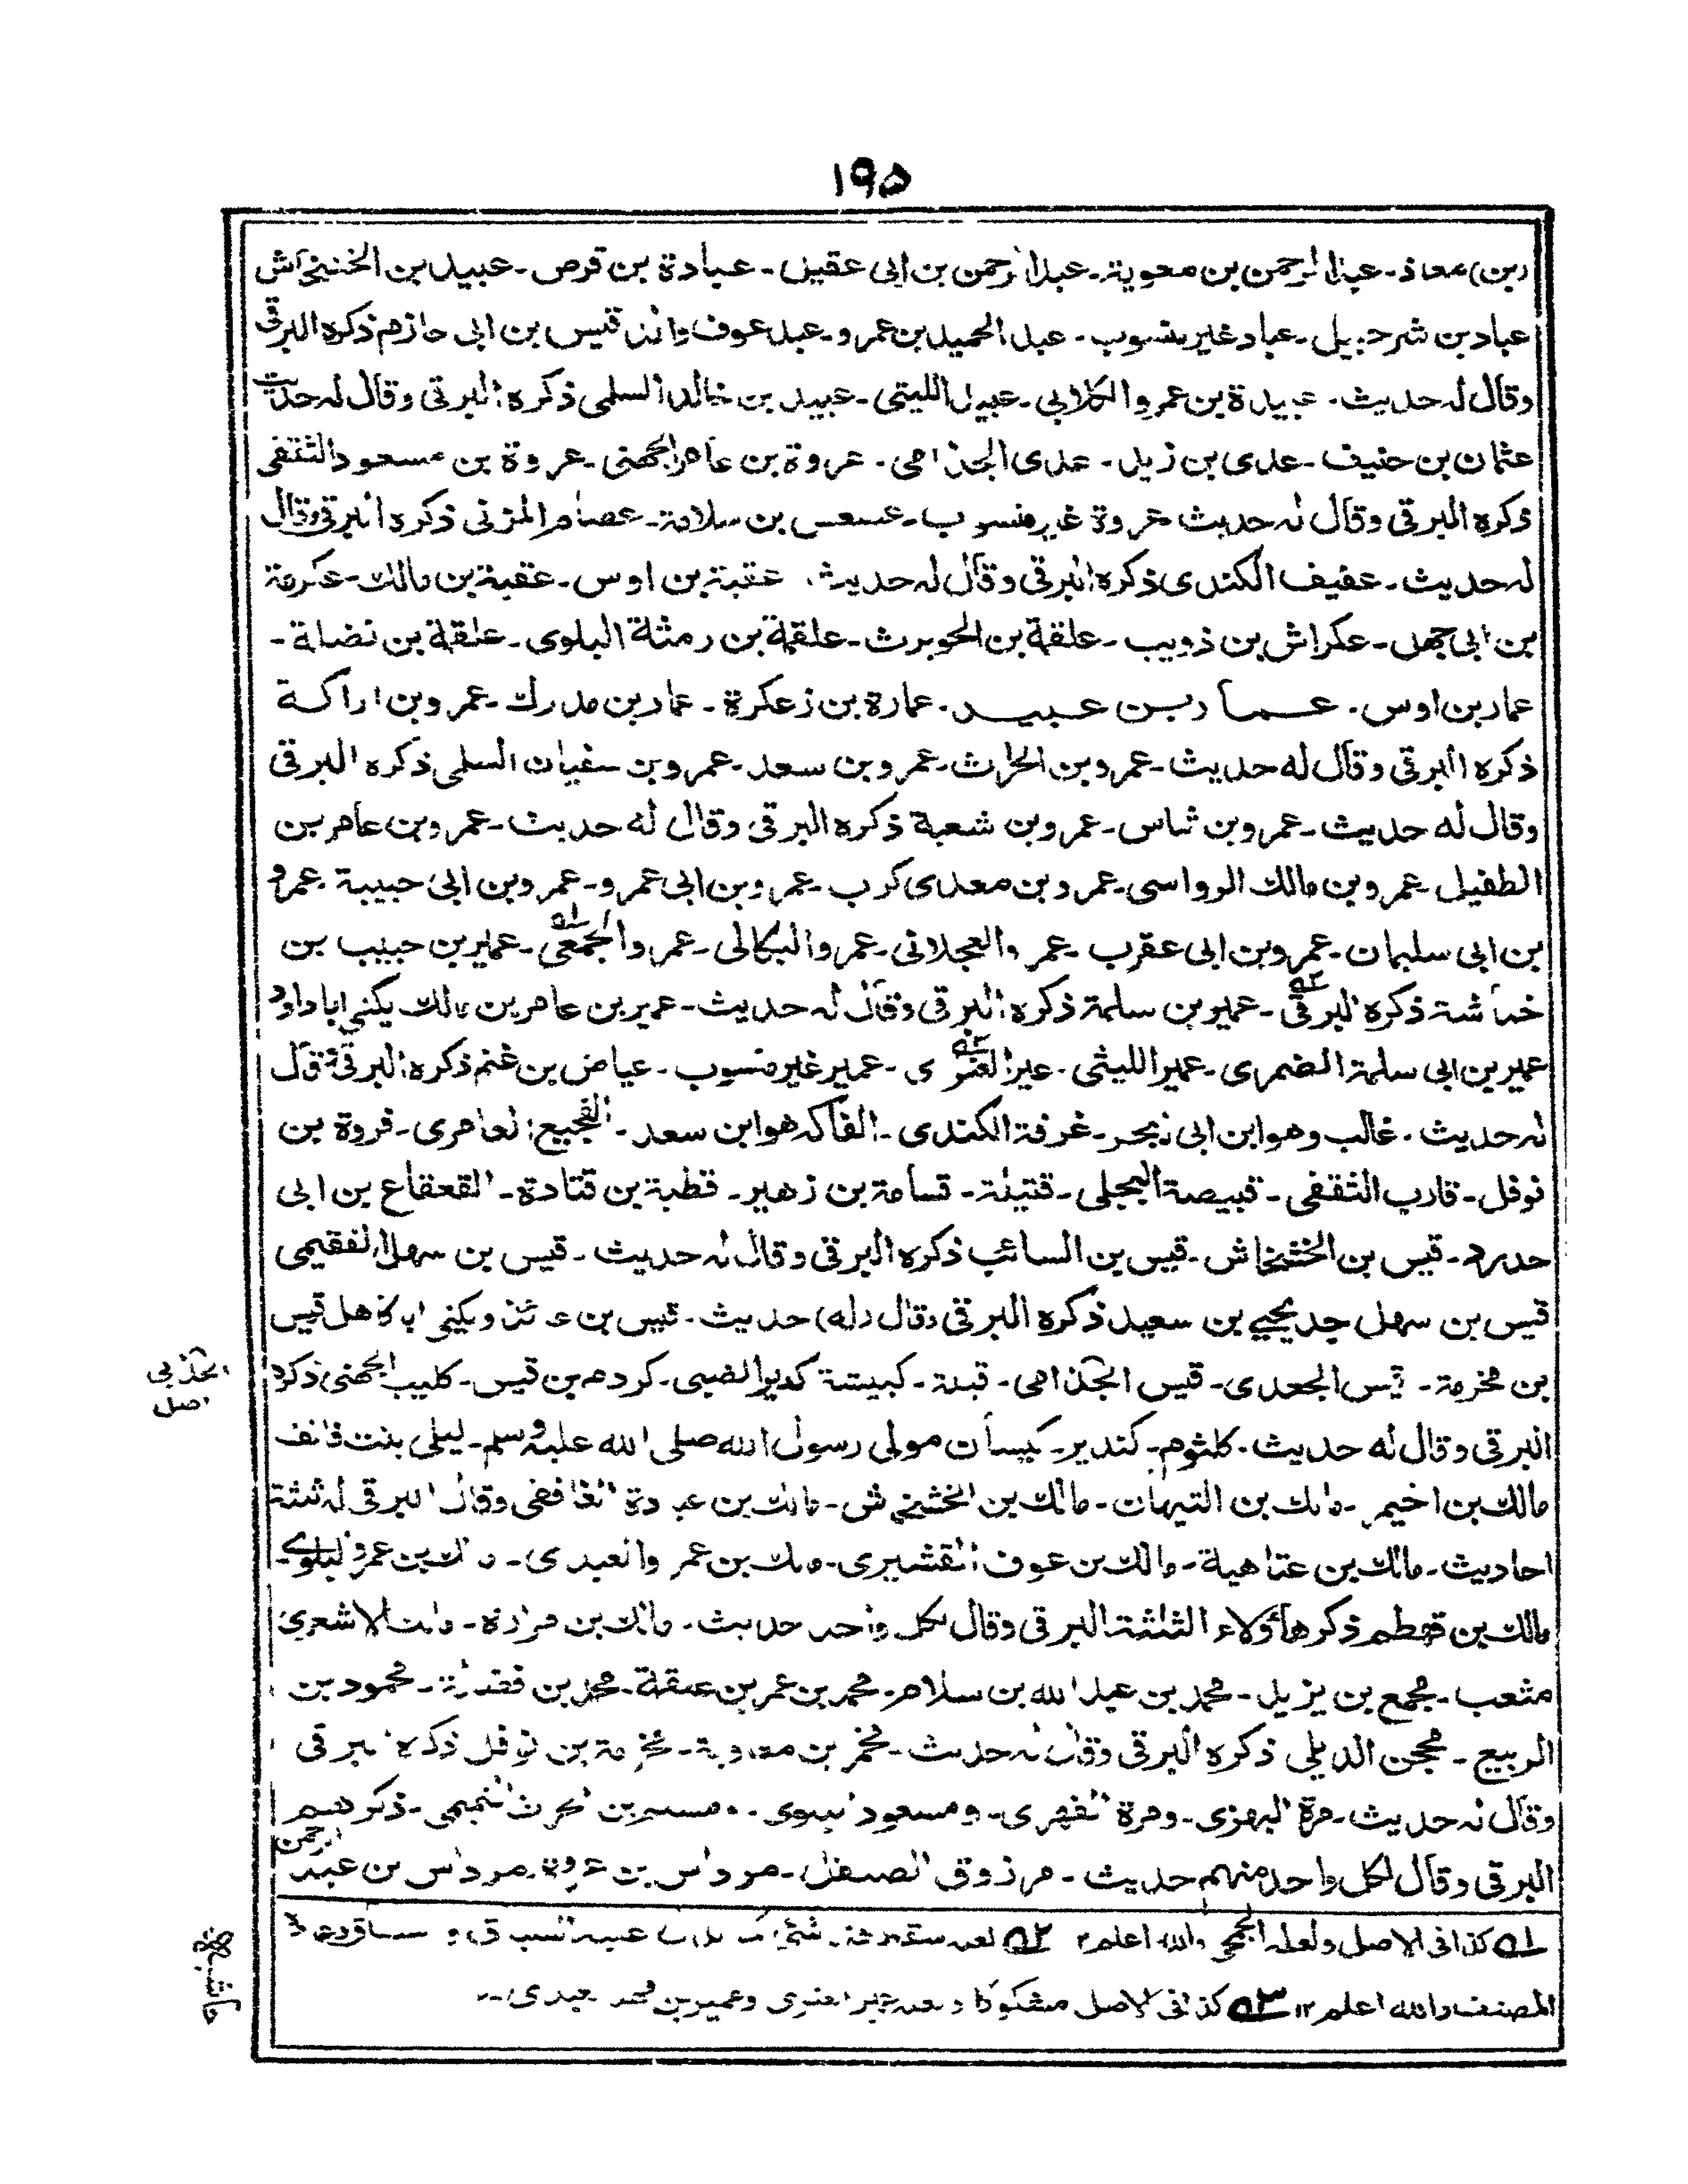 ١٩۵
(بن) معاذ۔ عبد الرحمن بن معوية۔ عبد الرحمن بن ابى عقيل۔ عبادة بن قرص۔ عبيد بن الخشخاش
عباد بن شرحبيل۔ عباد غير منسوب۔ عبد الحميد بن عمرو۔ عبد عوف والد قيس بن ابى حازم ذكره البرقى
وقال له حديث۔ عبيدة بن عمرو الكلابي۔ عبيد الليثى۔ عبيد بن خالد السلمى ذكره البرقى وقال له حديث
عثمان بن حنيف۔ عدى بن زيد۔ عدى الجذامى۔ عروة بن عامر الجهنى۔ عروة بن مسعود الثقفى
ذكره البرقى وقال له حديث عروة غير منسوب۔ عسعس بن سلامة۔ عصام المزنى ذكره البرقى وقال
له حديث۔ عفيف الكندى ذكره البرقى وقال له حديث۔ عقبة بن اوس۔ عقبة بن مالك۔ عكرمة
بن ابى جهل۔ عكراش بن ذويب۔ علقمة بن الحويرث۔ علقمة بن رمثة البلوى۔ علقمة بن نضلة۔
عمار بن اوس۔ عمار بن عبيد۔ عمارة بن زعكرة۔ عمار بن مدرك۔ عمرو بن اراكة
ذكره البرقى وقال له حديث۔ عمرو بن الحارث۔ عمرو بن سعد۔ عمرو بن سفيان السلمى ذكره البرقى
وقال له حديث۔ عمرو بن شاس۔ عمرو بن شعبة ذكره البرقى وقال له حديث۔ عمرو بن عامر بن
الطفيل۔ عمرو بن مالك الرواسى۔ عمرو بن معدى كرب۔ عمرو بن ابى عمرو۔ عمرو بن ابى حبيبة۔ عمرو
بن ابى سليمان۔ عمرو بن ابى عقرب۔ عمرو العجلانى۔ عمرو البكالى۔ عمرو الجمعى ؎۱۔ عمير بن حبيب بن
خماشة ذكره البرقى ؎۲۔ عمير بن سلمة ذكره البرقى وقال له حديث۔ عمير بن عامر بن مالك يكنى ابا داود
عمير بن ابى سلمة الضمرى۔ عمير الليثى۔ عير العنزى ؎۳۔ عمير غير منسوب۔ عياض بن غنم ذكره البرقى وقال
له حديث۔ غالب وهو ابن ابجر۔ غرفة الكندى۔ الفاكه هو ابن سعد۔ الفجيع العامرى۔ فروة بن
نوفل۔ قارب الثقفى۔ قبيصة البجلى۔ قتيلة۔ قسامة بن زهير۔ قطبة بن قتادة۔ القعقاع بن ابى
حدرد۔ قيس بن الخشخاش۔ قيس بن السائب ذكره البرقى وقال له حديث۔ قيس بن سهل الفقيمى
قيس بن سهل جد يحيى بن سعيد ذكره البرقى وقال (له) حديث۔ قيس بن عائذ ويكنى ابا كاهل قيس
بن مخرمة۔ قيس الجعدى۔ قيس الجذامى۔ كبيشة كدير الضبى۔ كردم بن قيس۔ كليب الجهنى ذكره
البرقى وقال له حديث۔ كلثوم۔ كندير۔ كيسان مولى رسول الله صلى الله عليه وسلم۔ ليلى بنت قانف
مالك بن اخيمر۔ مالك بن التيهان۔ مالك بن الخشخاش۔ مالك بن عبادة الغافقى وقال البرقى له ثلثة
احاديث۔ مالك بن عتاهية۔ مالك بن عوف القشيرى۔ مالك بن عمرو العبدى۔ مالك بن عمرو البلوى۔
مالك بن قهطم ذكر هٰؤلاء الثلثة البرقى وقال لكل واحد حديث۔ مالك بن مرارة۔ مالك الاشعرى
مثعب۔ مجمع بن يزيد۔ محمد بن عبد الله بن سلام۔ محمد بن عمر بن علقمة۔ محمد بن فضالة۔ محمود بن
الربيع۔ محجن الديلى ذكره البرقى وقال له حديث۔ مخمر بن معاوية۔ مخرمة بن نوفل ذكره البرقى
وقال له حديث۔ مرة البهزى۔ ومرة الفهرى۔ ومسعود البلوى۔ ومسلم بن الحرث التميمى۔ ذكرهم
البرقى وقال لكل واحد منهم حديث۔ مرزوق الصيقل۔ مرداس بن عروة۔ مرداس بن عبد الرحمن
؎۱ كذا فى الاصل ولعله الجمحى والله اعلم ۱۲ ؎۲ لعله سقط منه شئ
المصنف والله اعلم ۱۲ ؎۳ كذا فى الاصل مشكوكا ولعله عمير العنزى وعمير بن
الجذبى
اصل
حاشية